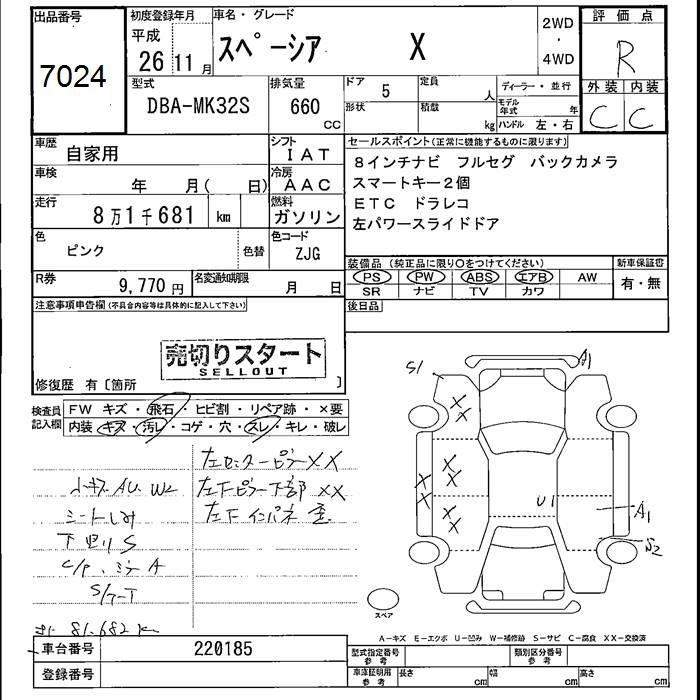 出品番号 初度登録年月 車名・グレード 2WD 評価点
7024 平成 スペーシア X ・ R
26 11月 4WD
型式 排気量 ドア 5 定員 人 ディーラー・並行 外装 内装
DBA-MK32S 660 cc 形状 積載 kg モデル年式 年 C C
ハンドル 左・右
車歴 自家用 シフト IAT セールスポイント(正常に機能するものに限ります)
車検 年 月( 日) 冷房 AAC 8インチナビ フルセグ バックカメラ
スマートキー2個
走行 8万1千681 km 燃料 ガソリン ETC ドラレコ
左パワースライドドア
色 ピンク 色替 色コード ZJG
装備品(純正品に限り○をつけてください) 新車保証書
R券 9,770円 名変通知期限 月 日 PS PW ABS エアB AW 有・無
SR ナビ TV カワ
注意事項申告欄(不具合内容等は具体的に記入して下さい) 後日品
売切りスタート
SELLOUT
修復歴 有〔箇所 〕
検査員記入欄 FW キズ・飛石・ヒビ割・リペア跡・×要
内装・キズ・汚レ・コゲ・穴・スレ・キレ・破レ
S1 A1
左センターピラーXX
小キズ AU W2 左下ピラー下部 XX
シートしみ 左下インパネ
下廻りS
A
U1 A1
S2
81.682 km
スペア
A-キズ E-エクボ U-凹み W-補修跡 S-サビ C-腐食 XX-交換済
車台番号 220185 型式指定番号 参考 類別区分番号 参考
登録番号 車庫証明用 参考 長さ cm 幅 cm 高さ cm